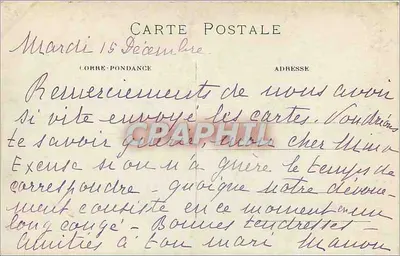 CARTE POSTALE
Mardi 15 Décembre
CORRESPONDANCE
ADRESSE
Remerciements de nous avoir
si vite envoyé les cartes. Voudrions
te savoir guérie, mon cher Mimo
Excuse si on n'a guère le temps de
correspondre - quoique notre dévoue-
ment consiste en ce moment en un
long congé - Bonnes tendresses -
Amitiés à ton mari Manon
CPAPHIL